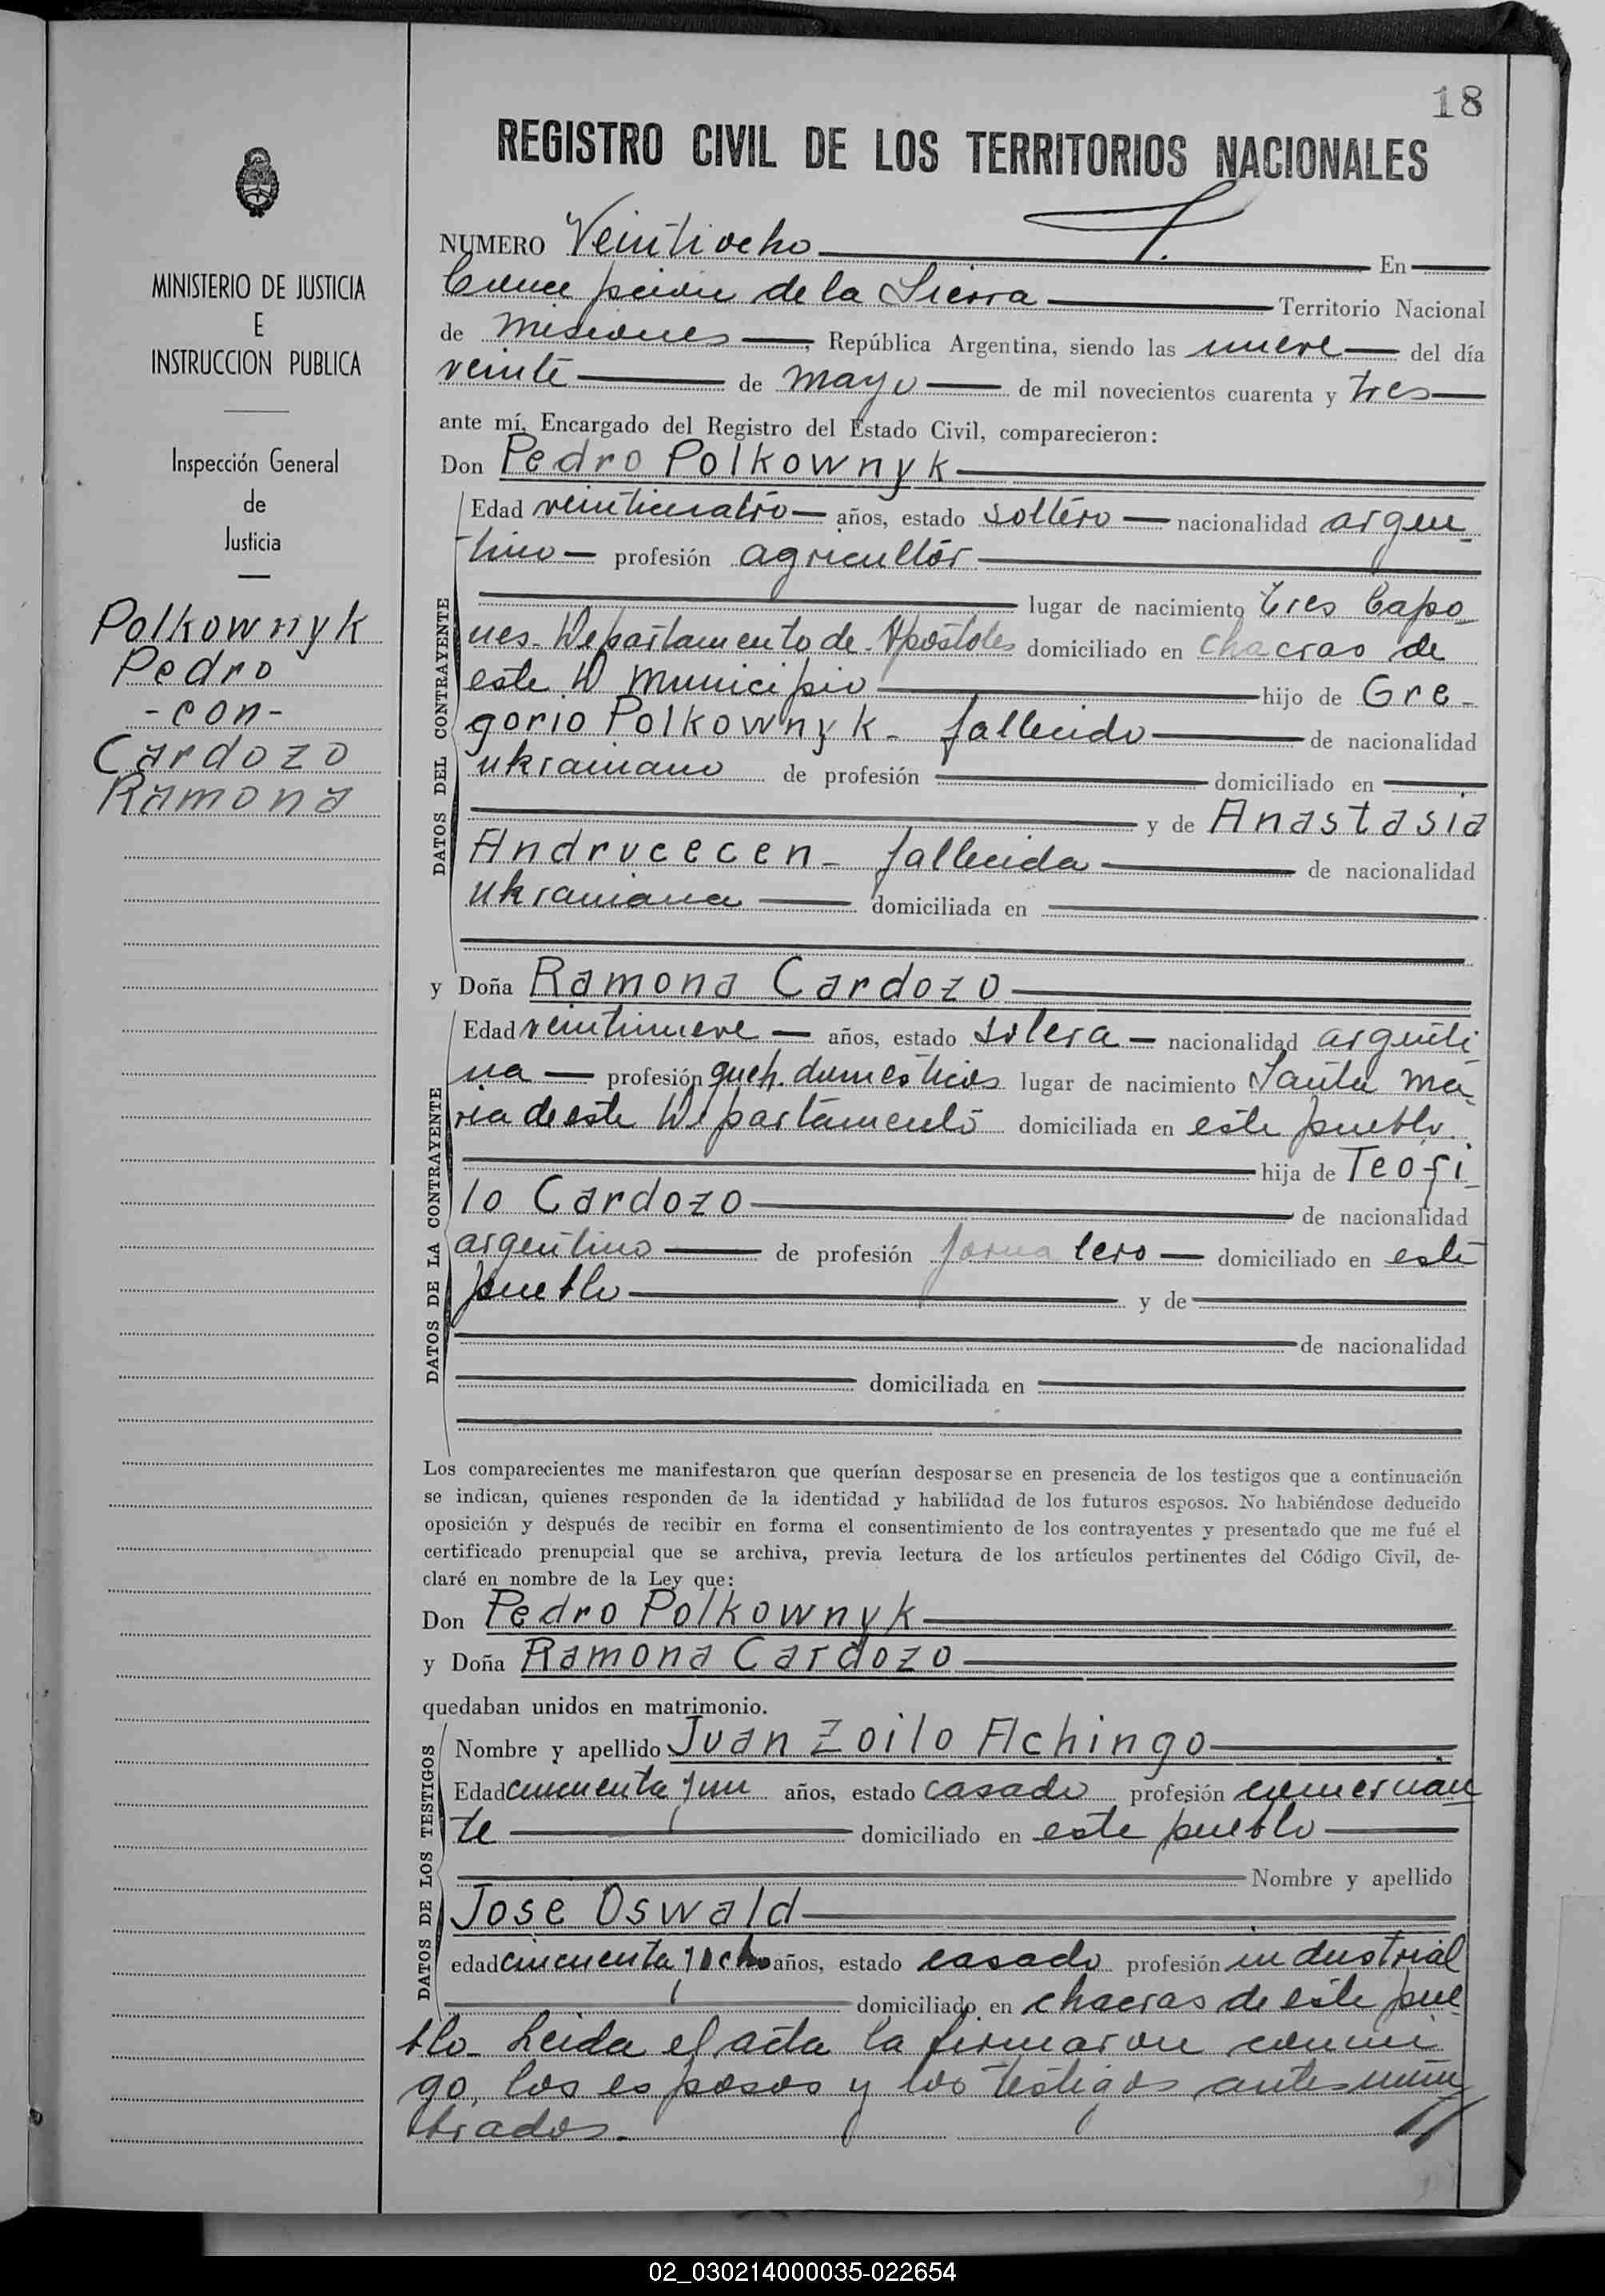 18
REGISTRO CIVIL DE LOS TERRITORIOS NACIONALES
MINISTERIO DE JUSTICIA
E
INSTRUCCION PUBLICA
Inspección General
de
Justicia
Polkownyk
Pedro
-con-
Cardozo
Ramona
NUMERO Veintiocho En
Concepción de la Sierra Territorio Nacional
de Misiones, República Argentina, siendo las nueve del día
veinte de mayo de mil novecientos cuarenta y tres
ante mí, Encargado del Registro del Estado Civil, comparecieron:
Don Pedro Polkownyk
DATOS DEL CONTRAYENTE
Edad veinticuatro años, estado soltero nacionalidad argen-
tino profesión agricultor
lugar de nacimiento tres Capo-
nes - Departamento de Apóstoles domiciliado en chacras de
este Municipio hijo de Gre-
gorio Polkownyk - fallecido de nacionalidad
ukraniano de profesión domiciliado en
y de Anastasia
Andrucecen - fallecida de nacionalidad
ukraniana domiciliada en
y Doña Ramona Cardozo
DATOS DE LA CONTRAYENTE
Edad veintinueve años, estado soltera nacionalidad argenti-
na profesión queh. domésticos lugar de nacimiento Santa Ma-
ria de este Departamento domiciliada en este pueblo.
hija de Teofi-
lo Cardozo de nacionalidad
argentino de profesión jornalero domiciliado en este
pueblo y de
de nacionalidad
domiciliada en
Los comparecientes me manifestaron que querían desposarse en presencia de los testigos que a continuación
se indican, quienes responden de la identidad y habilidad de los futuros esposos. No habiéndose deducido
oposición y después de recibir en forma el consentimiento de los contrayentes y presentado que me fué el
certificado prenupcial que se archiva, previa lectura de los artículos pertinentes del Código Civil, de-
claré en nombre de la Ley que:
Don Pedro Polkownyk
y Doña Ramona Cardozo
quedaban unidos en matrimonio.
DATOS DE LOS TESTIGOS
Nombre y apellido Juan Zoilo Achingo
Edad cincuenta y un años, estado casado profesión comercian-
te domiciliado en este pueblo
Nombre y apellido
Jose Oswald
edad cincuenta y ocho años, estado casado profesión industrial
domiciliado en chacras de este pue-
blo- Leida el acta la firmaron conmi-
go, los esposos y los testigos antes nom-
brados.-
02_030214000035-022654